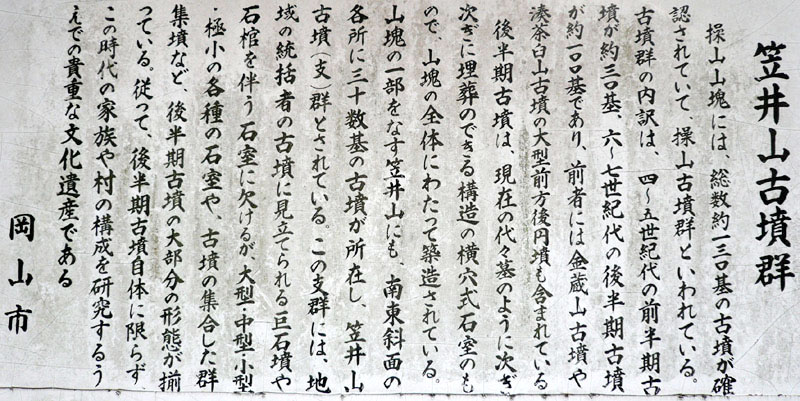 笠井山古墳群
操山山塊には、総数約一三〇基の古墳が確
認されていて、操山古墳群といわれている。
古墳群の内訳は、四〜五世紀代の前半期古
墳が約三〇基、六〜七世紀代の後半期古墳
が約一〇〇基であり、前者には金蔵山古墳や
湊茶臼山古墳の大型前方後円墳も含まれている
後半期古墳は、現在の代々墓のように次ぎ
次ぎに埋葬のできる構造の横穴式石室のも
ので、山塊の全体にわたって築造されている。
山塊の一部をなす笠井山にも、南東斜面の
各所に三十数基の古墳が所在し、笠井山
古墳(支)群とされている。この支群には、地
域の統括者の古墳に見立てられる巨石墳や
石棺を伴う石室に欠けるが、大型・中型・小型
・極小の各種の石室や、古墳の集合した群
集墳など、後半期古墳の大部分の形態が揃
っている。従って、後半期古墳自体に限らず、
この時代の家族や村の構成を研究するう
えでの貴重な文化遺産である
岡山市